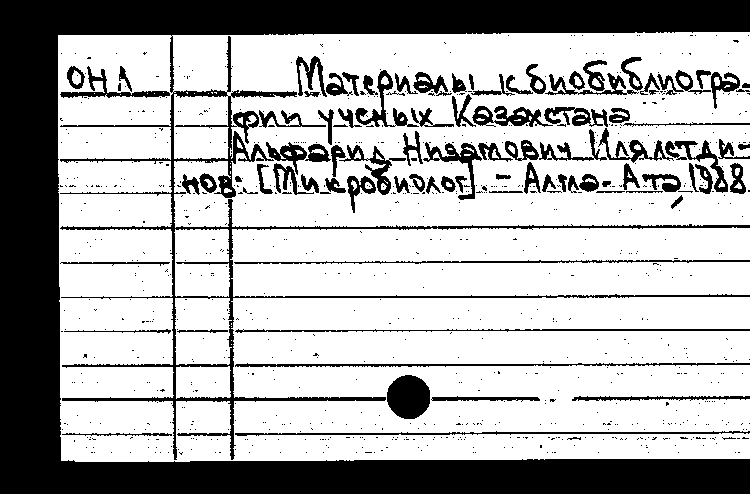 ОНЛ Материалы к биобиблиогра-
фии ученых Казахстана
Альфарид Низамович Илялетди-
нов: [Микробиолог]. – Алма-Ата, 1988